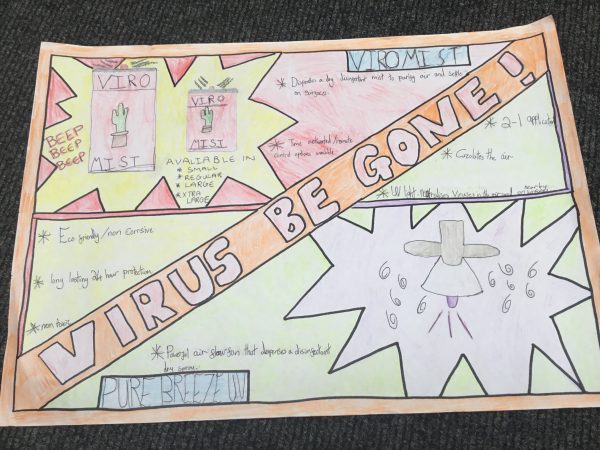 VIRO
MIST
VIRO
MIST
BEEP
BEEP
BEEP
AVALIABLE IN
* SMALL
* REGULAR
* LARGE
* EXTRA
LARGE
VIROMIST
* Dispenses a dry disinfectant mist to purify air and settle
on surfaces
* Time activated/remote
control options available
VIRUS BE GONE!
* 2-1 application
* Circulates the air
* UV light neutralises viruses in the air and on
* Eco friendly/non corrosive
* long lasting 24 hour protection
* non toxic
* Powerful air
that dispenses a disinfectant
dry spray
PURE BREEZE UV